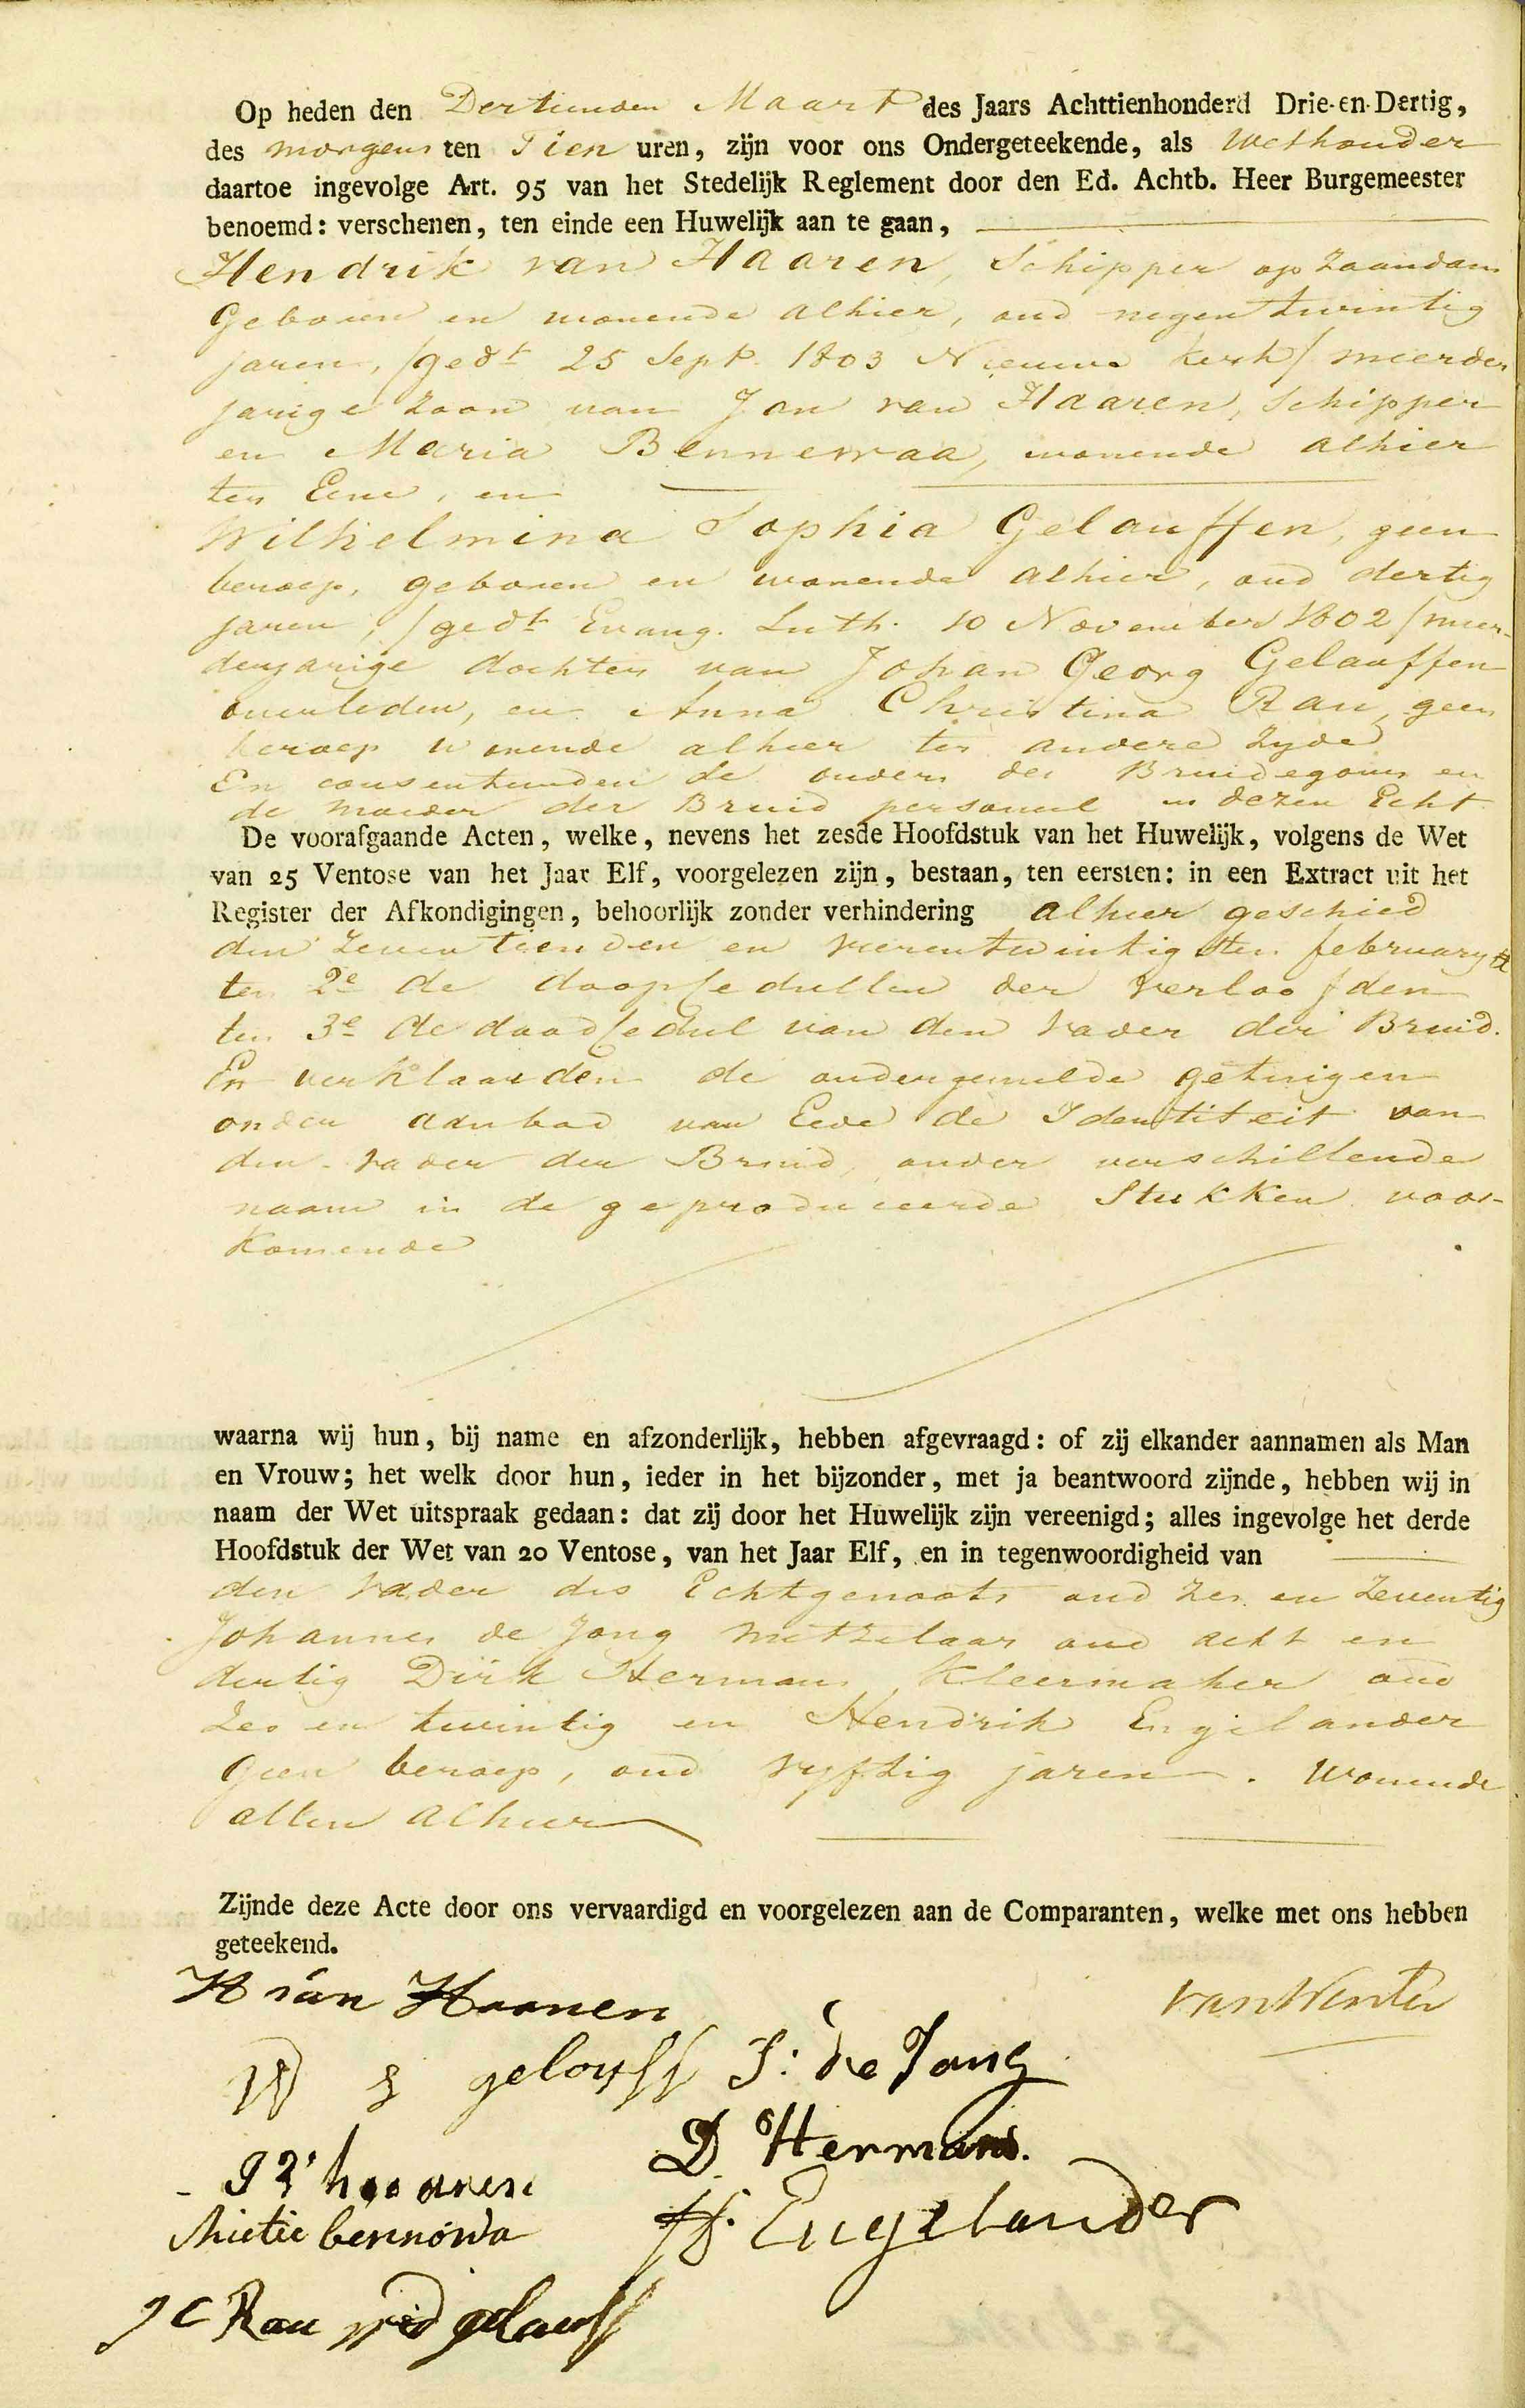 Op heden den Dertienden Maart des Jaars Achttienhonderd Drie-en-Dertig,
des morgens ten Tien uren, zijn voor ons Ondergeteekende, als Wethouder
daartoe ingevolge Art. 95 van het Stedelijk Reglement door den Ed. Achtb. Heer Burgemeester
benoemd: verschenen, ten einde een Huwelijk aan te gaan,
Hendrik van Haaren, Schipper op Zaandam
Geboren en wonende alhier, oud negentwintig
jaren, /ged.t 25 Sept. 1803 Nieuwe Kerk/ meerder
jarige Zoon van Jan van Haaren, Schipper
en Maria Bennewaa, wonende alhier
ter Eene, en
Wilhelmina Sophia Gelauffen, geen
beroep, geboren en wonende alhier, oud dertig
jaren, /ged.t Evang. Luth. 10 November 1802 /meer-
derjarige dochter van Johan Georg Gelauffen
overleden, en Anna Christina Rau, geen
beroep wonende alhier ter andere Zyde
En consenteerden de ouders des Bruidegoms en
de moeder der Bruid personeel in dezen Echt
De voorafgaande Acten, welke, nevens het zesde Hoofdstuk van het Huwelijk, volgens de Wet
van 25 Ventose van het Jaar Elf, voorgelezen zijn, bestaan, ten eersten: in een Extract uit het
Register der Afkondigingen, behoorlijk zonder verhindering alhier geschied
den Zeventienden en vierentwintigsten february ll
ten 2e de doopcedullen der verloofden
ten 3e de doodcedul van den Vader der Bruid.
En verklaarden de ondergemelde getuigen
onder aanbod van Eede de Identiteit van
den Vader der Bruid, onder verschillende
naam in de geproduceerde Stukken voor-
komende
waarna wij hun, bij name en afzonderlijk, hebben afgevraagd: of zij elkander aannamen als Man
en Vrouw; het welk door hun, ieder in het bijzonder, met ja beantwoord zijnde, hebben wij in
naam der Wet uitspraak gedaan: dat zij door het Huwelijk zijn vereenigd; alles ingevolge het derde
Hoofdstuk der Wet van 20 Ventose, van het Jaar Elf, en in tegenwoordigheid van
den Vader des Echtgenoots oud Zes en Zeventig
Johannes de Jong Metzelaar oud acht en
dertig Dirk Hermans, Kleermaker oud
Zes en twintig en Hendrik Engelander
Geen beroep, oud vyftig jaren. Wonende
allen alhier
Zijnde deze Acte door ons vervaardigd en voorgelezen aan de Comparanten, welke met ons hebben
geteekend.
H van Haanen van Winter
W S gelouff J: de Jong
D Hermans.
J V haaren
Mietie bennowa H. Engelander
J C Rau wed gelauff